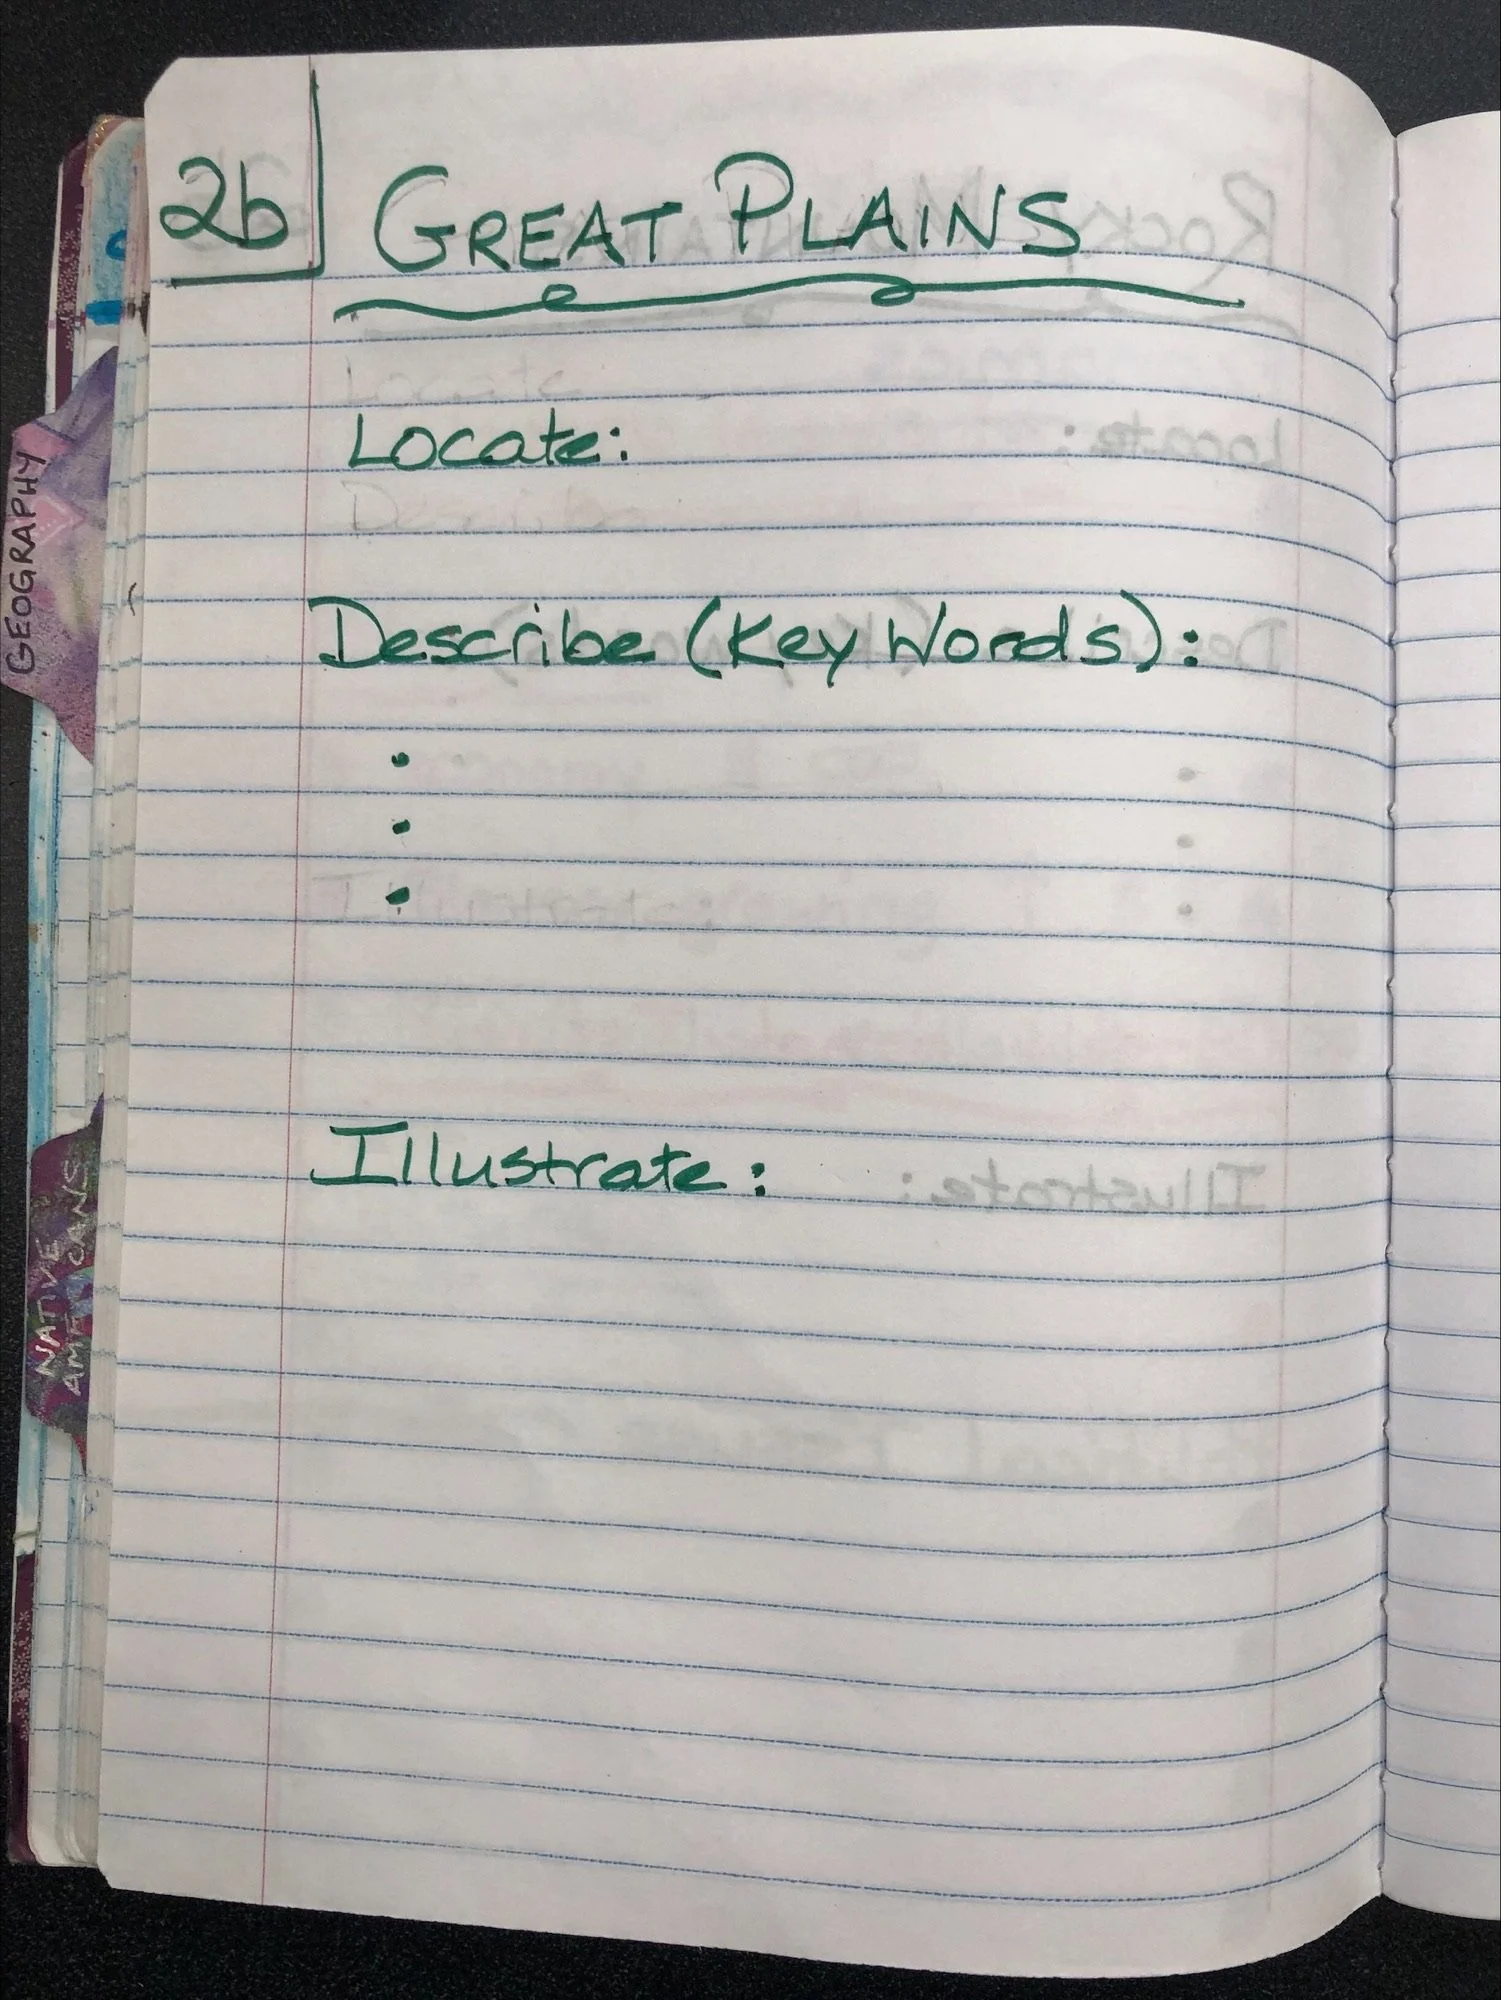 2b
GREAT PLAINS
Locate:
Describe (Key Words):
•
•
•
Illustrate:
GEOGRAPHY
NATIVE
AMERICANS